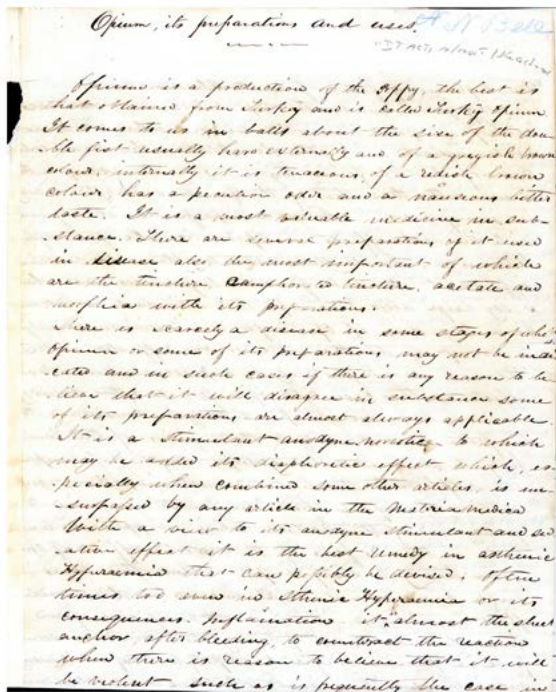 Opium, its preparations and uses.
A N Bell
"IT ACTS
Opium is a production of the Poppy, the best is
that obtained from Turkey and is called Turkey Opium
It comes to us in balls about the size of the dou-
ble fist usually hard externally and of a greyish brown
colour, internally it is tenacious, of a redish brown
colour has a peculiar odor and a nauseous bitter
taste. It is a most valuable medicine in sub-
stance. There are several preparations of it used
in disease also the most important of which
are the tincture camphorated tincture, acetate and
morphia with its preparations.
There is scarcely a disease in some stages of which
Opium or some of its preparations may not be indi
cated and in such cases if there is any reason to be
lieve that it will disagree in substance some
of its preparations are almost always applicable.
It is a stimulant anodyne narcotic to which
may be added its diaphoretic effect which, es
pecially when combined some other articles, is un
surpassed by any article in the Materia Medica
With a view to its anodyne stimulant and sed
ative effect it is the best remedy in asthenic
Hyperaemia that can possibly be devised. Often
times too even in Sthenic Hyperaemia or its
consequences. Inflamation it almost the sheet
anchor, after bleeding, to counteract the reaction
when there is reason to believe that it will
be violent such as is frequently the case in